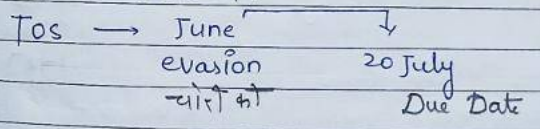 TOS → June
evasion 20 July
चोरी की Due Date